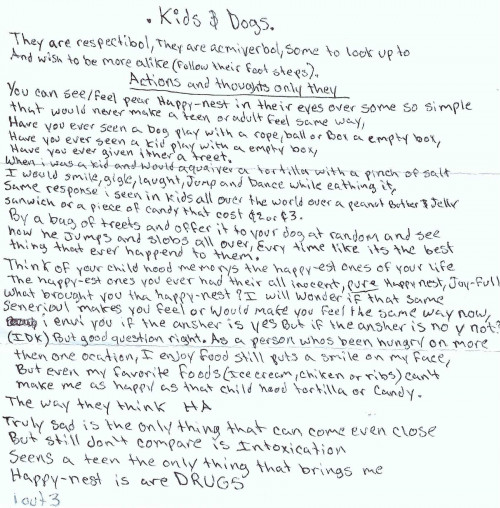 . Kids & Dogs.
They are respectibol, They are acmiverbol, some to look up to
And wish to be more alike (follow their foot steps).
Actions and thoughts only they
You can see/feel pear Happy-nest in their eyes over some so simple
that would never make a teen or adult feel same way,
Have you ever seen a bog play with a rope, ball or Box a empty box,
Have you ever seen a kid play with a empty box,
Have you ever given ither a treet.
When i was a kid and would aquaiver a tortilla with a pinch of salt
I would smile, gigle, laught, Jump and Dance while eathing it,
Same response i seen in kids all over the world over a peanut Butter & Jelly
sanwich or a piece of candy that cost ¢2 or $3.
By a bag of treets and offer it to your dog at random and see
how he Jumps and slobs all over, Evry time like its the best
thing that ever happend to them.
Think of your child hood memorys the happy-est ones of your life
The happy-est ones you ever had their all inocent, pure Happy nest, Joy-Full
what brought you tha happy-nest? I will wonder if that same
Seneriowl makes you feel or would make you feel the same way now,
i envi you if the ansher is yes But if the ansher is no y not?
(IDK) But good question right. As a person whos been hungry on more
then one ocation, I enjoy food still puts a smile on my face,
But even my favorite foods (Ice cream, chiken or ribs) can't
make me as happy as that child hood tortilla or candy.
The way they think HA
Truly sad is the only thing that can come even close
But still don't compare is Intoxication
Seens a teen the only thing that brings me
Happy-nest is are DRUGS
1 out 3